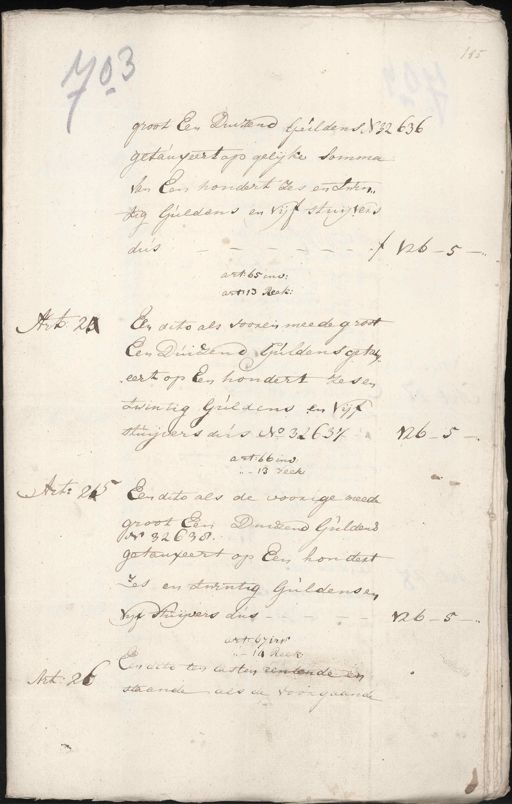 703
185
groot Een Duizend Guldens N 32636
getauxeert op gelijke Somma
van Een hondert Zes en Twin„
tig Guldens en vijf stuijvers
dús - - - - - ƒ 126-5-
art: 65 inv:
art: 13 Reek:
Art: 24 Een dito als vooren meede groot
Een Duizend Guldens getax„
eert op Een hondert Zes en
twintig Guldens en Vijf
stuijvers dús No 32637 126-5-
art: 66 inv
" 13 reek
Art: 25 Een dito als de voorige meede
groot Een Duizend Guldens
N 32638.
getauxeert op Een hondert
Zes en twintig Guldens en
Vijf stuijvers dús - - - - 126-5-
art: 67 inv
" 14 Reek
Art: 26 Een dito ten lasten rentende en
staande als de voorgaande